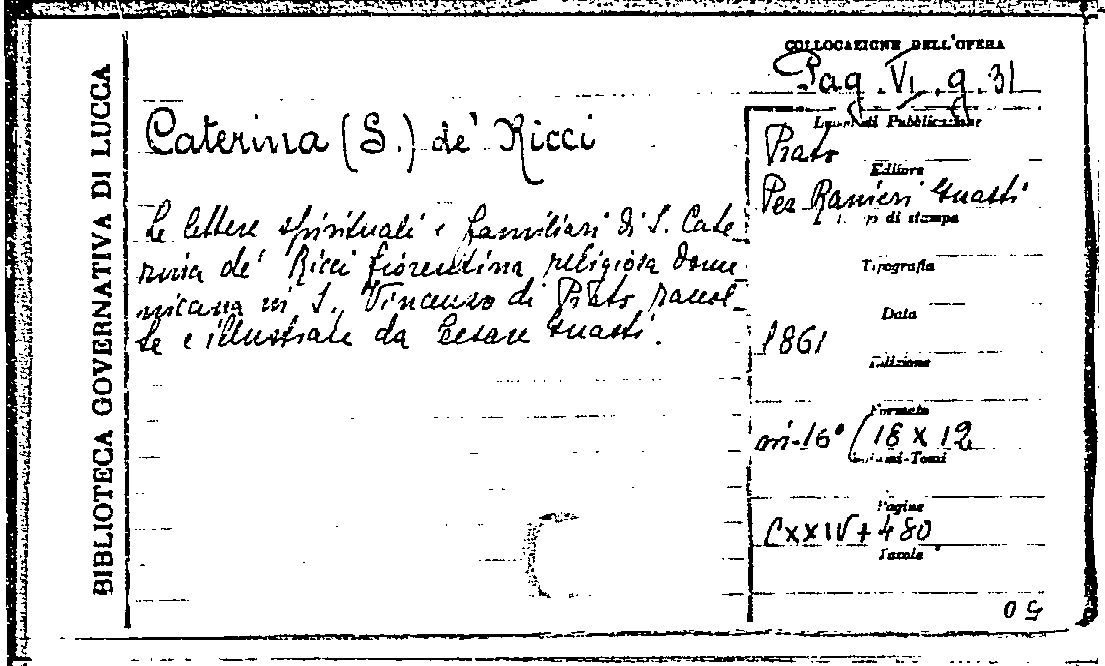 BIBLIOTECA GOVERNATIVA DI LUCCA
COLLOCAZIONE DELL'OPERA
Pag. VI. g. 31
Caterina (S.) de' Ricci
Le lettere spirituali e familiari di S. Cate
rina de' Ricci fiorentina religiosa dome
nicana in S. Vincenzo di Prato raccol
te e illustrate da Cesare Guasti.
Luogo di Pubblicazione
Prato
Editore
Per Ranieri Guasti
di stampa
Tipografia
Data
1861
Edizione
Formato
in-16° (18 x 12
Volumi-Tomi
Pagine
CXXIV + 480
Tavole